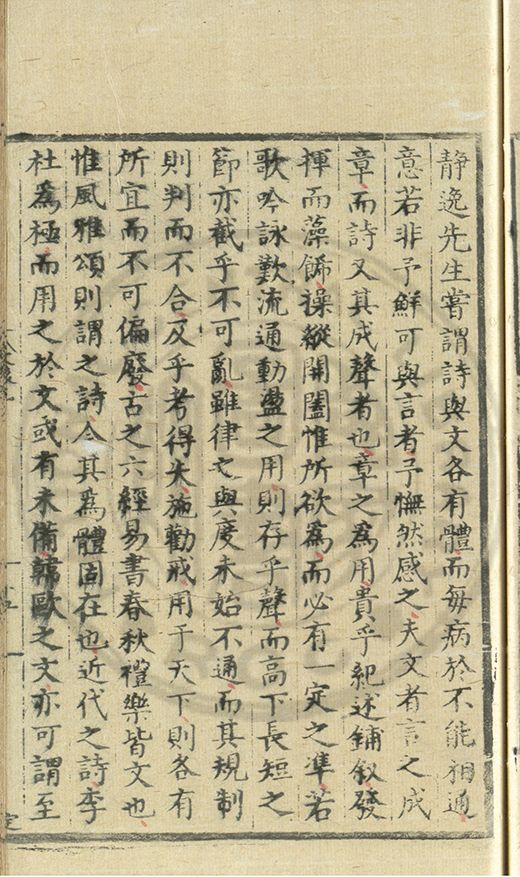 静逸先生嘗謂詩與文各有體而每病於不能相通
意若非予鮮可與言者予憮然感之夫文者言之成
章而詩又其成聲者也章之為用貴乎紀述鋪叙發
揮而藻餙操縱開闔惟所欲為而必有一定之準若
歌吟詠歎流通動盪之用則存乎聲而高下長短之
節亦截乎不可亂雖律之與度未始不通而其規制
則判而不合及乎考得失施勸戒用于天下則各有
所宜而不可偏廢古之六經易書春秋禮樂皆文也
惟風雅頌則謂之詩今其為體固在也近代之詩李
杜為極而用之於文或有未備韓歐之文亦可謂至